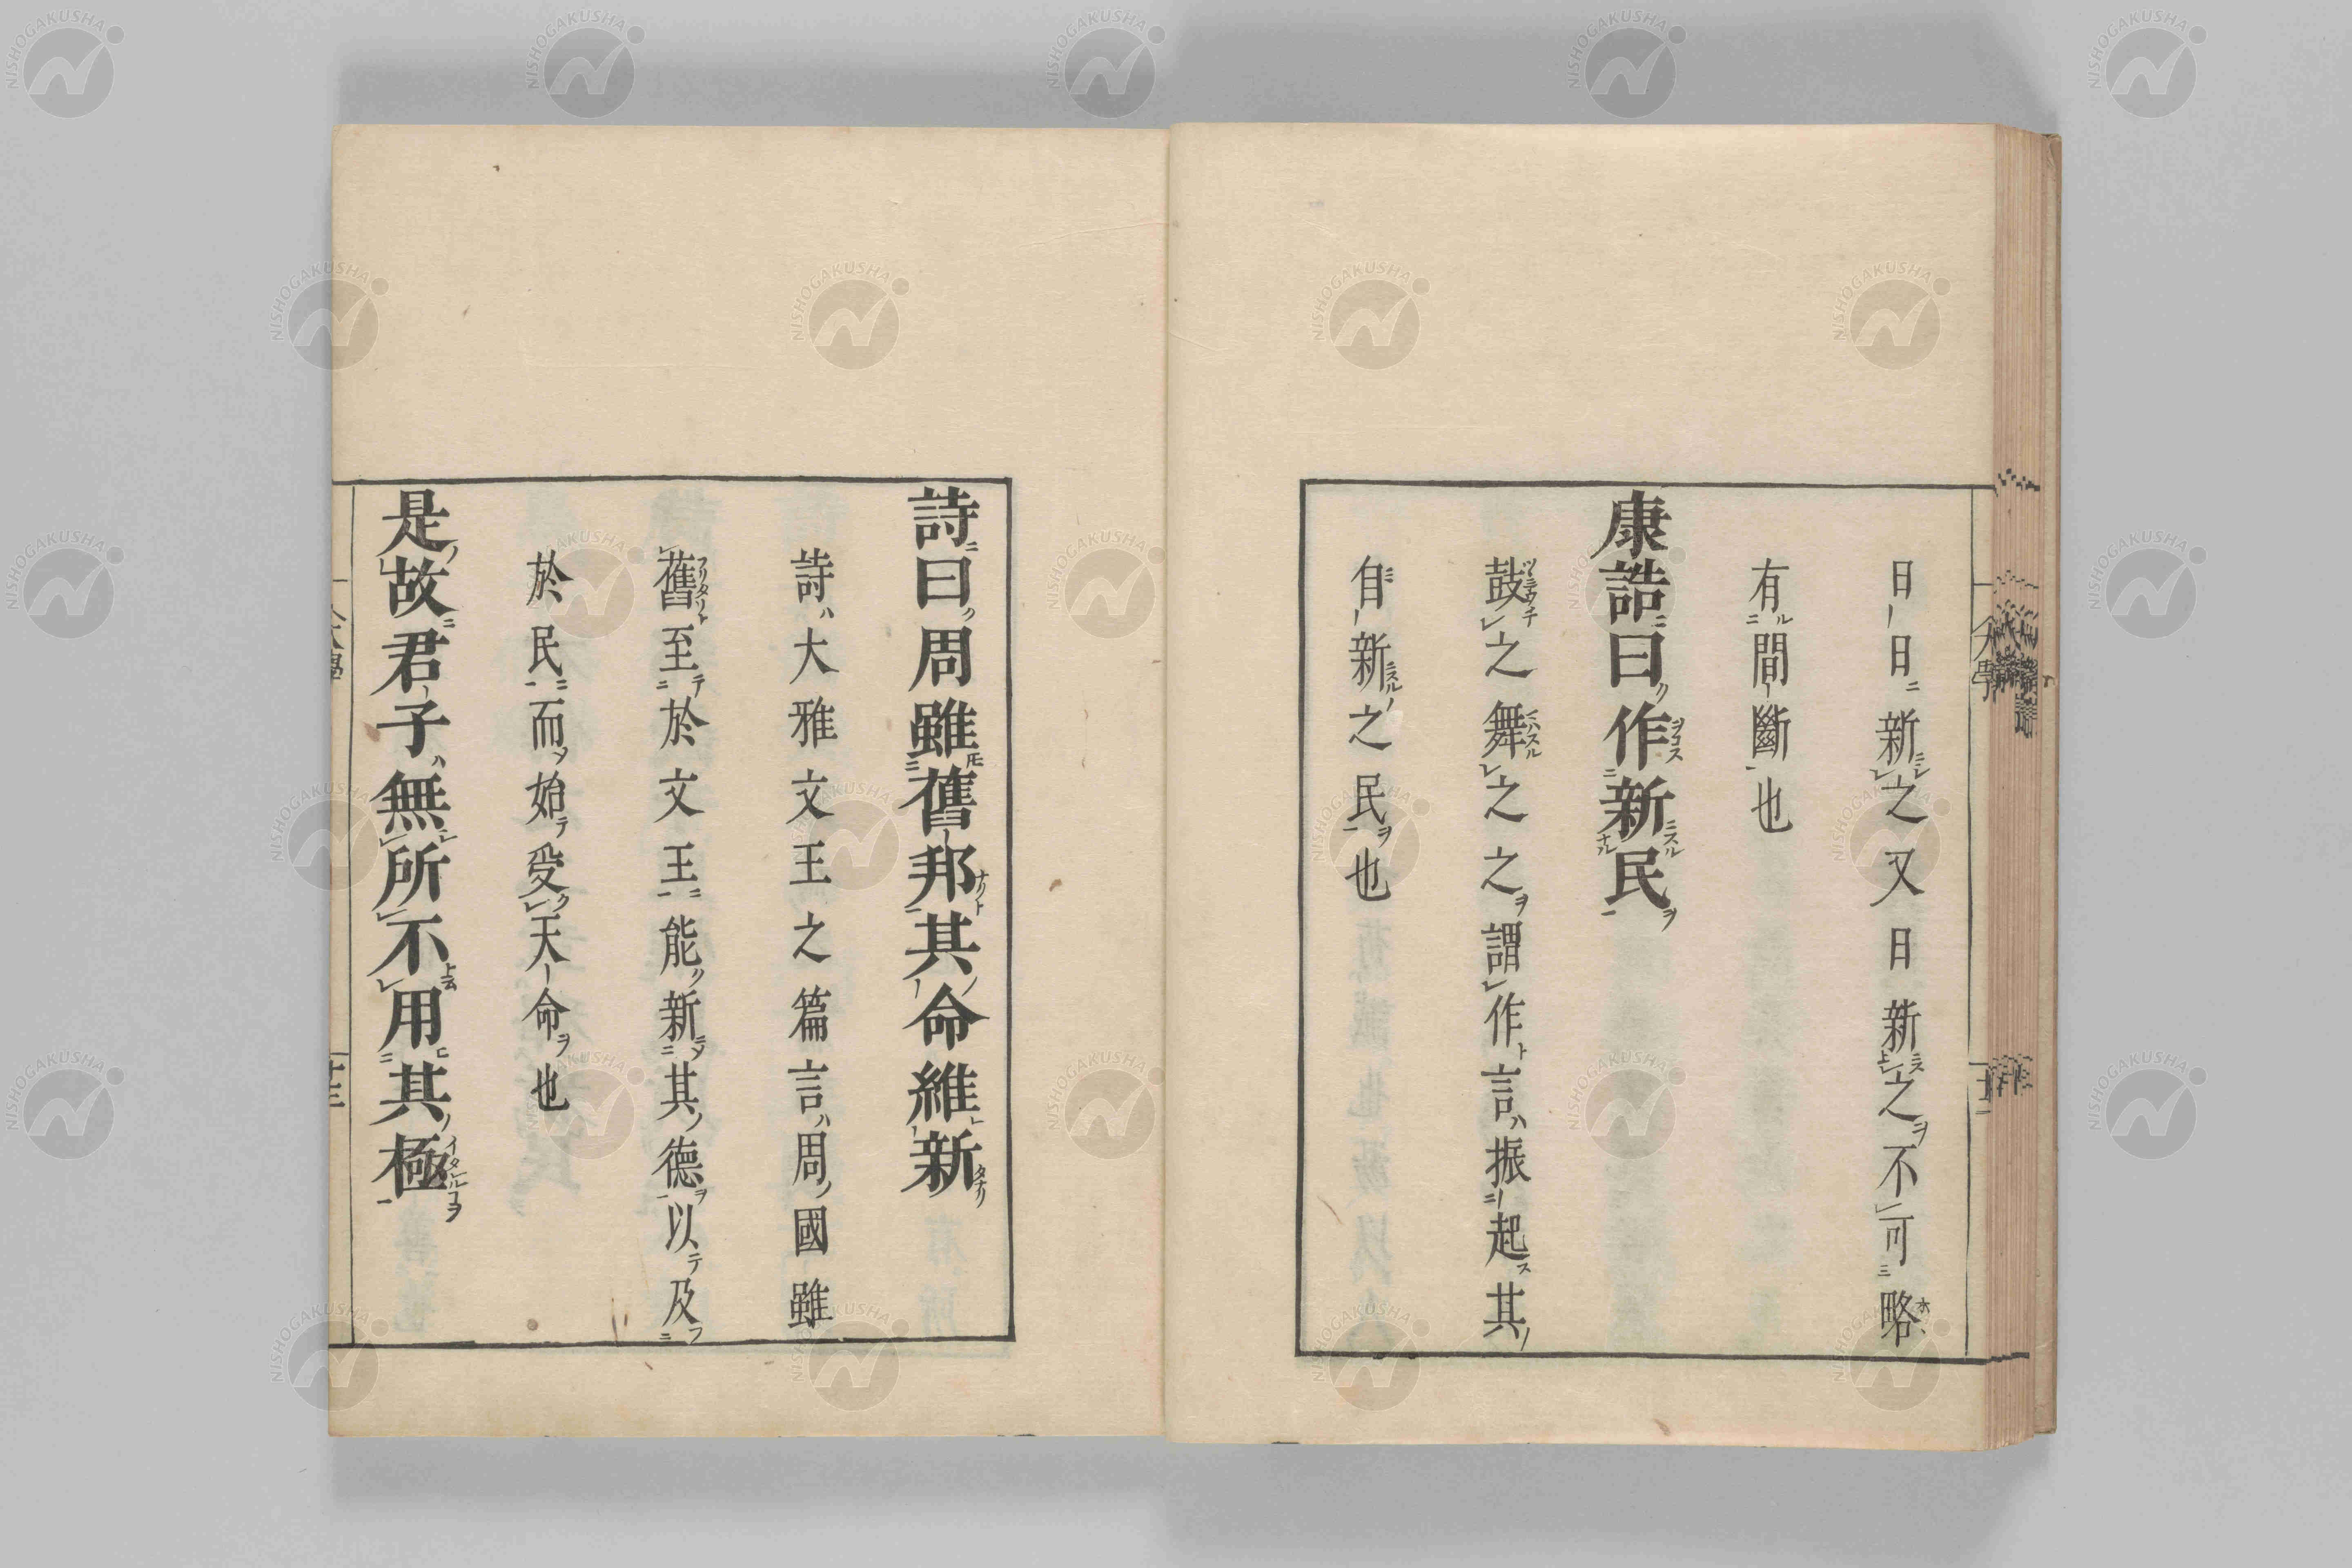 日日新之又日新之不可略
有間斷也
康誥曰作新民
鼓之舞之之謂作言振起其
自新之民也
詩曰周雖舊邦其命維新
詩大雅文王之篇言周國雖
舊至於文王能新其德以及
於民而始受天命也
是故君子無所不用其極
大學
十二
NISHOGAKUSHA